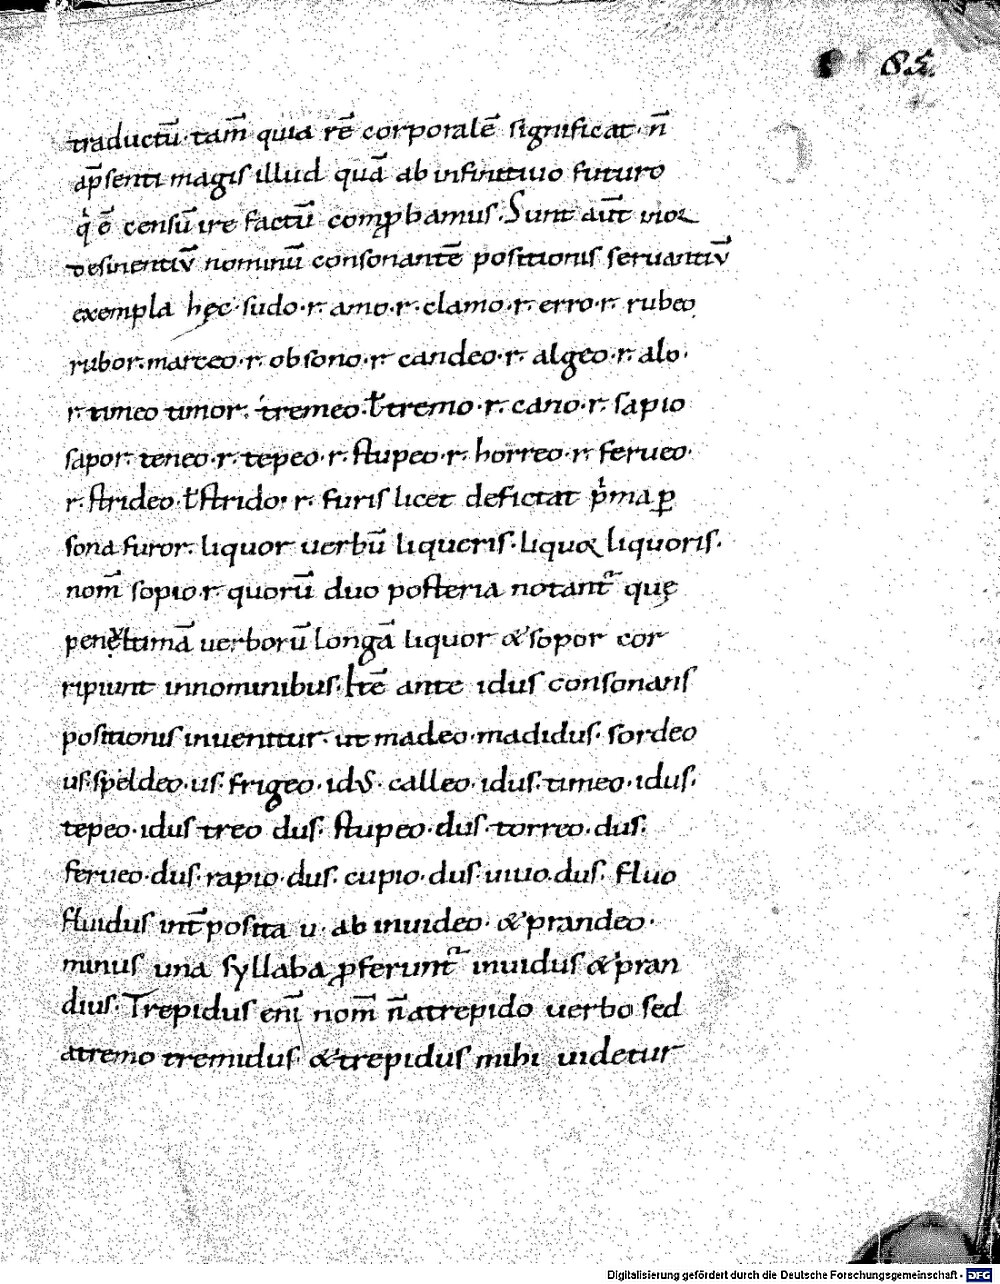 85.
traductū· tam̄ quia rē corporalē significat· n̄
ap̄senti magis illud quā ab infinitiuo futuro
q̇ ē censū ire factū comꝓbamus. Sunt aūt in or
desinentiū nominū consonantē positionis seruantiū
exempla hęc· sudo· r· amo· r· clamo· r· erro· r· rubeo
rubor· marceo· r· obsono· r· candeo· r· algeo· r· alo·
r· timeo timor· tremeo· ł tremo· r· cano· r· sapio
sapor· teneo· r· tepeo· r· stupeo· r· horreo· r· ferueo·
r· strideo· ł strido· r· furis licet deficiat p̍ma ꝑ
sona furor· liquor uerbū liqueris· liquor liquoris·
nom̄ sopio· r· quorū duo posteria notant᷑ quę
penęltimā uerborū longā liquor & sopor cor
ripiunt in nominibus· Itē ante idus consonans
positionis inuenitur· ut madeo· madidus· sordeo
us· speldeo· us· frigeo· idus· calleo· idus· timeo· idus·
tepeo· idus treo dus· stupeo· dus· torreo· dus·
ferueo· dus· rapio· dus· cupio· dus· uiuo· dus· fluo
fluidus int̄posita u· ab inuideo· & prandeo·
minus una syllaba ꝓferunt᷑ inuidus & pran
dius· Trepidus enī nom̄ n̄ a trepido uerbo sed
a tremo tremidus & trepidus mihi uidetur
Digitalisierung gefördert durch die Deutsche Forschungsgemeinschaft - DFG